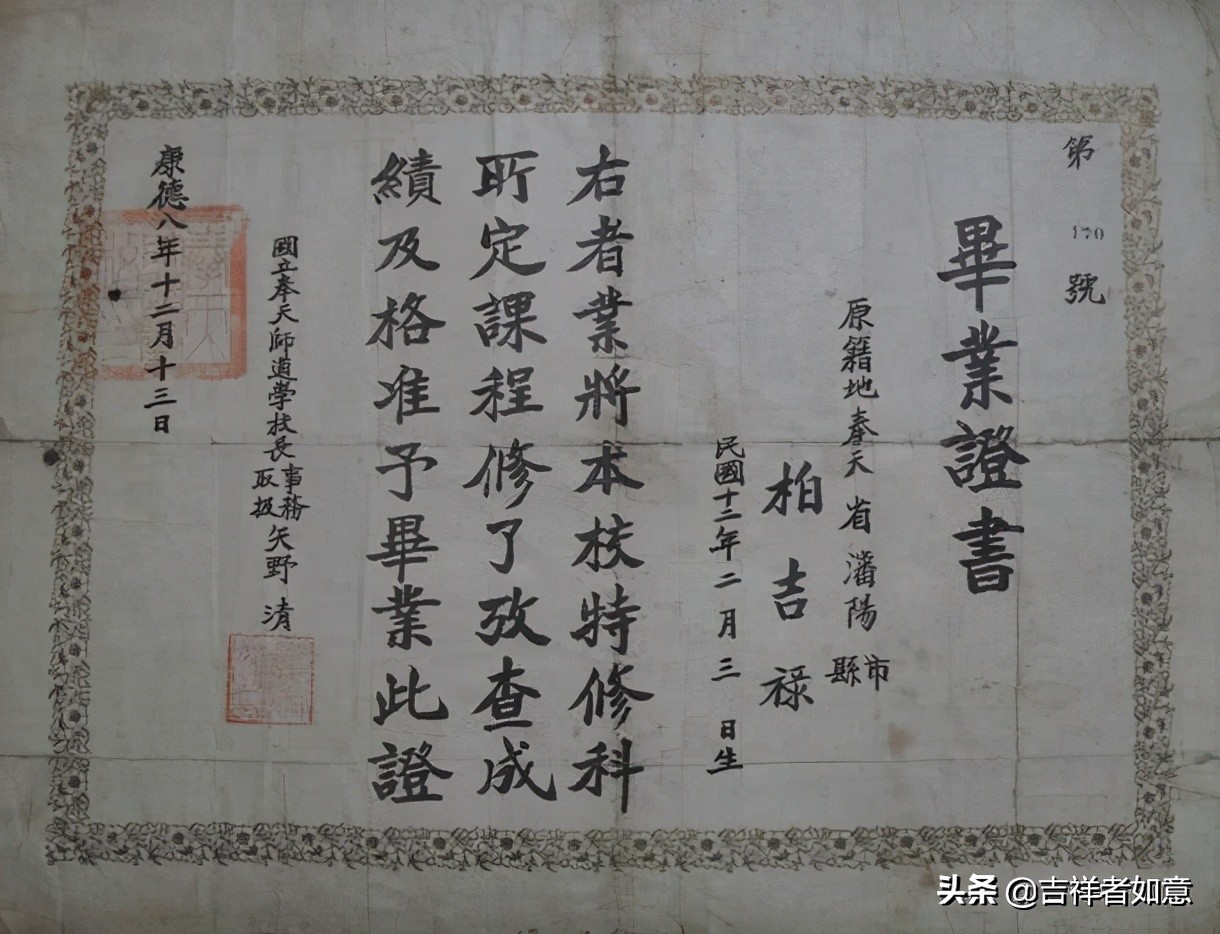 第 170 號
畢業證書
原籍地奉天省瀋陽市縣
柏吉祿
民國十二年二月三日生
右者業將本校特修科
所定課程修了攷查成
績及格准予畢業此證
國立奉天師道學校長事務取扱矢野清
康德八年十二月十三日
头条 @吉祥者如意